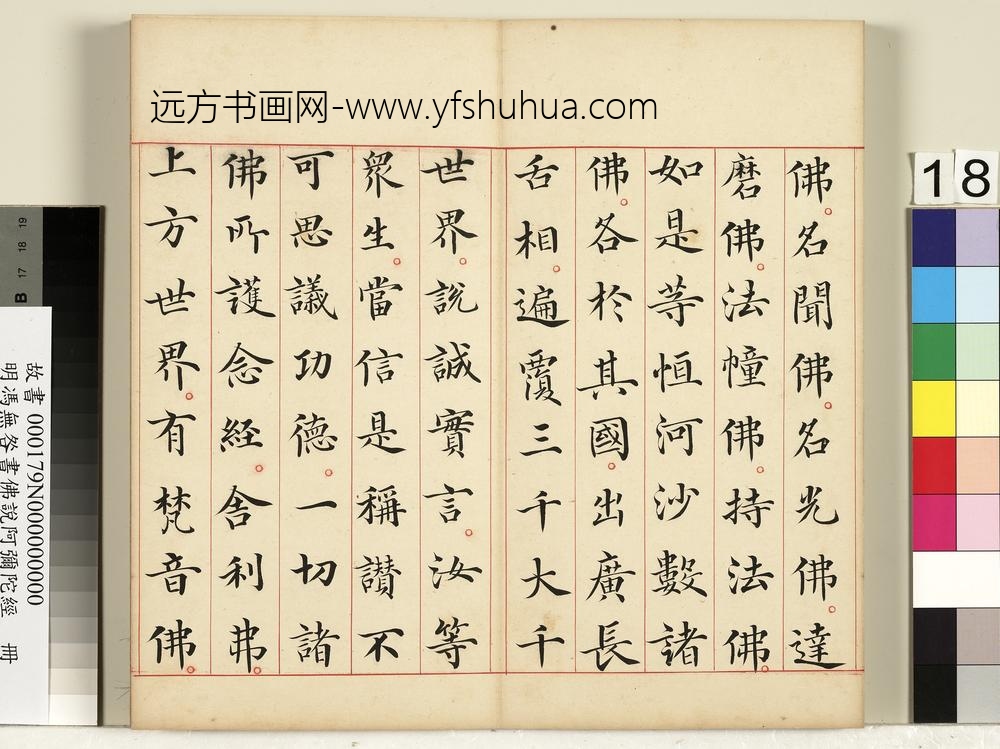 远方书画网-www.yfshuhua.com
佛。名聞佛。名光佛。達
磨佛。法幢佛。持法佛。
如是等恒河沙數諸
佛。各於其國。出廣長
舌相。遍覆三千大千
世界。說誠實言。汝等
衆生。當信是稱讃不
可思議功德。一切諸
佛所護念經。舍利弗。
上方世界。有梵音佛。
18
19
18
17
B
故書 000179N000000000
明馮無咎書佛說阿彌陀經 冊